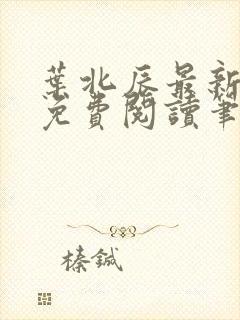 葉北辰最新
免費閱讀筆
榛鍼